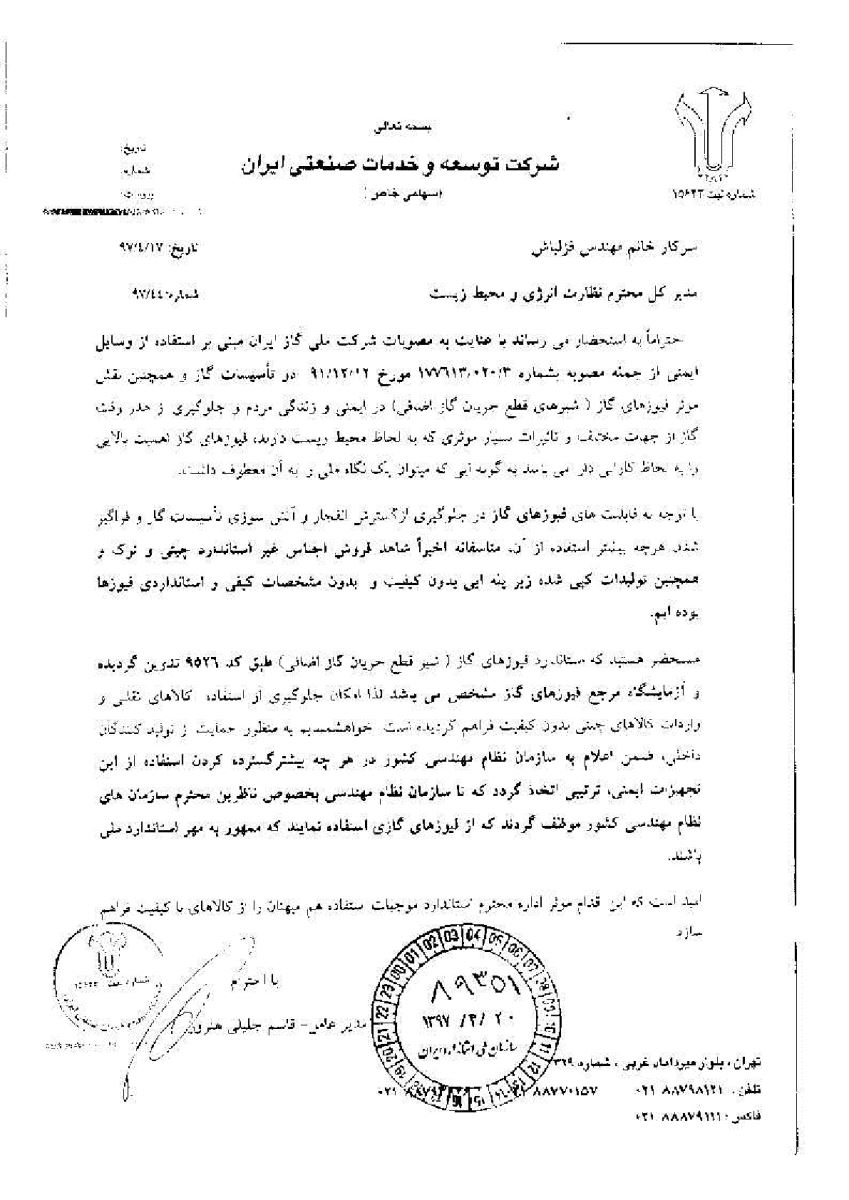 بسمه تعالی
شرکت توسعه و خدمات صنعتی ایران
(سهامی خاص)
تاریخ:
شماره:
پیوست:
شماره ثبت ۱۵۶۲۳
سرکار خانم مهندس قزلباش
تاریخ: ۹۷/٤/۱۷
مدیر کل محترم نظارت انرژی و محیط زیست
شماره: ۹۷/٤٤
احتراماً به استحضار می رساند با عنایت به مصوبات شرکت ملی گاز ایران مبنی بر استفاده از وسایل
ایمنی از جمله مصوبه بشماره ۱۷۷۶۱۳/۰۲۰/۳ مورخ ۹۱/۱۲/۱۲ در تأسیسات گاز و همچنین نقش
موثر فیوزهای گاز ( شیرهای قطع جریان گاز اضافی) در ایمنی و زندگی مردم و جلوگیری از هدر رفت
گاز از جهات مختلف و تاثیرات بسیار موثری که به لحاظ محیط زیست دارند، فیوزهای گاز اهمیت بالایی
را به لحاظ کارایی دارا می باشد به گونه ایی که میتوان یک نگاه ملی را به آن معطوف داشت.
با توجه به قابلیت های فیوزهای گاز در جلوگیری ازگسترش انفجار و آتش سوزی تأسیسات گاز و فراگیر
شدن هرچه بیشتر استفاده از آن، متاسفانه اخیراً شاهد فروش اجناس غیر استاندارد چینی و ترک و
همچنین تولیدات کپی شده زیر پله ایی بدون کیفیت و بدون مشخصات کیفی و استانداردی فیوزها
بوده ایم.
مستحضر هستید که استاندارد فیوزهای گاز ( شیر قطع جریان گاز اضافی) طبق کد ۹۵۲۶ تدوین گردیده
و آزمایشگاه مرجع فیوزهای گاز مشخص می باشد لذا امکان جلوگیری از استفاده کالاهای تقلبی و
واردات کالاهای چینی بدون کیفیت فراهم گردیده است. خواهشمندیم به منظور حمایت از تولید کنندگان
داخلی، ضمن اعلام به سازمان نظام مهندسی کشور در هر چه بیشترگسترده کردن استفاده از این
تجهیزات ایمنی، ترتیبی اتخاذ گردد که تا سازمان نظام مهندسی بخصوص ناظرین محترم سازمان های
نظام مهندسی کشور موظف گردند که از فیوزهای گازی استفاده نمایند که ممهور به مهر استاندارد ملی
باشند.
امید است که این اقدام موثر اداره محترم استاندارد موجبات استفاده هم میهنان را از کالاهای با کیفیت فراهم
سازد
با احترام
مدیر عامل- قاسم جلیلی هنرور
شماره ثبت ۱۵۶۲۳
۸۹۳۵۱
۱۳۹۷ /۴/ ۲۰
سازمان ملی استاندارد ایران
تهران ، بلوار میرداماد غربی ، شماره ۳۲۹
تلفن: ۸۸۷۹۸۱۲۱ ۰۲۱
۸۸۷۷۰۱۵۷
فاکس: ۸۸۸۷۹۱۱۱ ۰۲۱